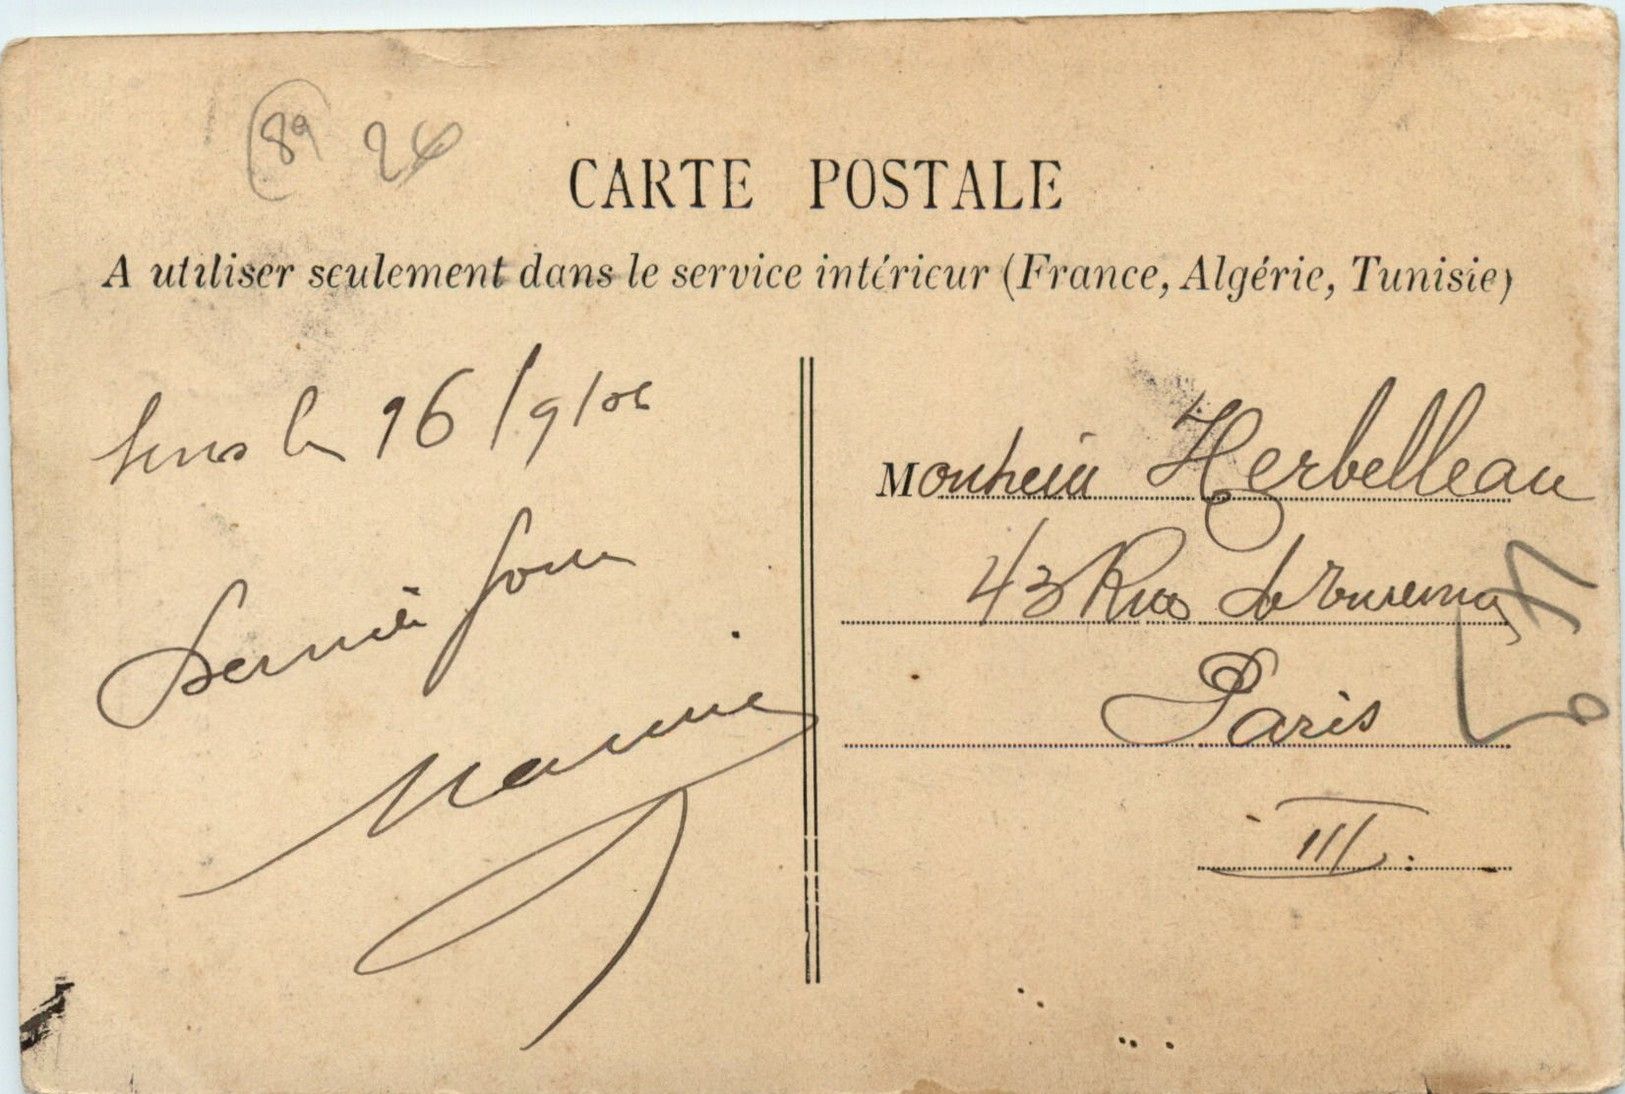 89 26
CARTE POSTALE
A utiliser seulement dans le service intérieur (France, Algérie, Tunisie)
Sens le 16/9/06
Dernier jour
Monsieur Herbelleau
43 Rue de Turenne
Paris
III